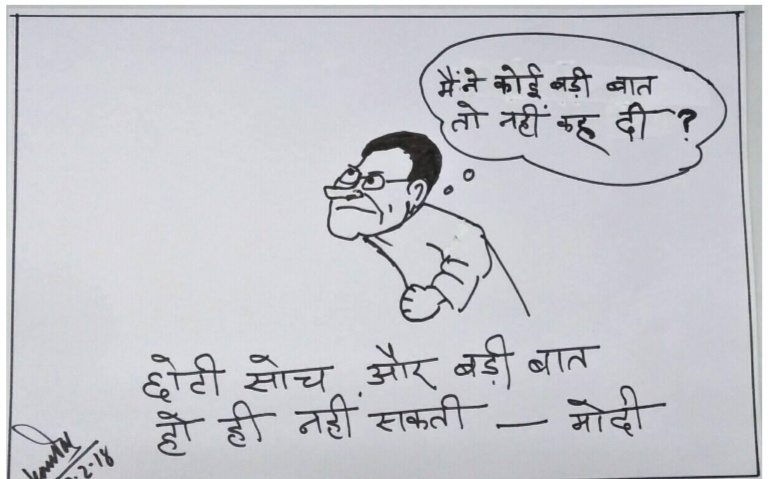 मैंने कोई बड़ी बात
तो नहीं कह दी ?
छोटी सोच और बड़ी बात
हो ही नहीं सकती — मोदी
2-18